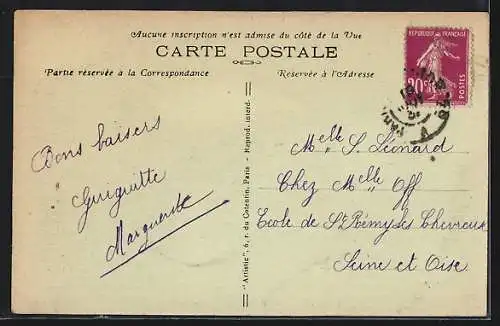 Aucune inscription n'est admise du côté de la Vue
CARTE POSTALE
Partie réservée à la Correspondance
Réservée à l'Adresse
REPUBLIQUE FRANÇAISE
20c
POSTES
PARIS
Bons baisers
Guiguitte
Marguerite
"Artistic" 6, r. du Cotentin, Paris - Reprod. interd.
Melle S. Léonard
Chez Melle Off
Ecole de St Rémy les Chevreuse
Seine et Oise